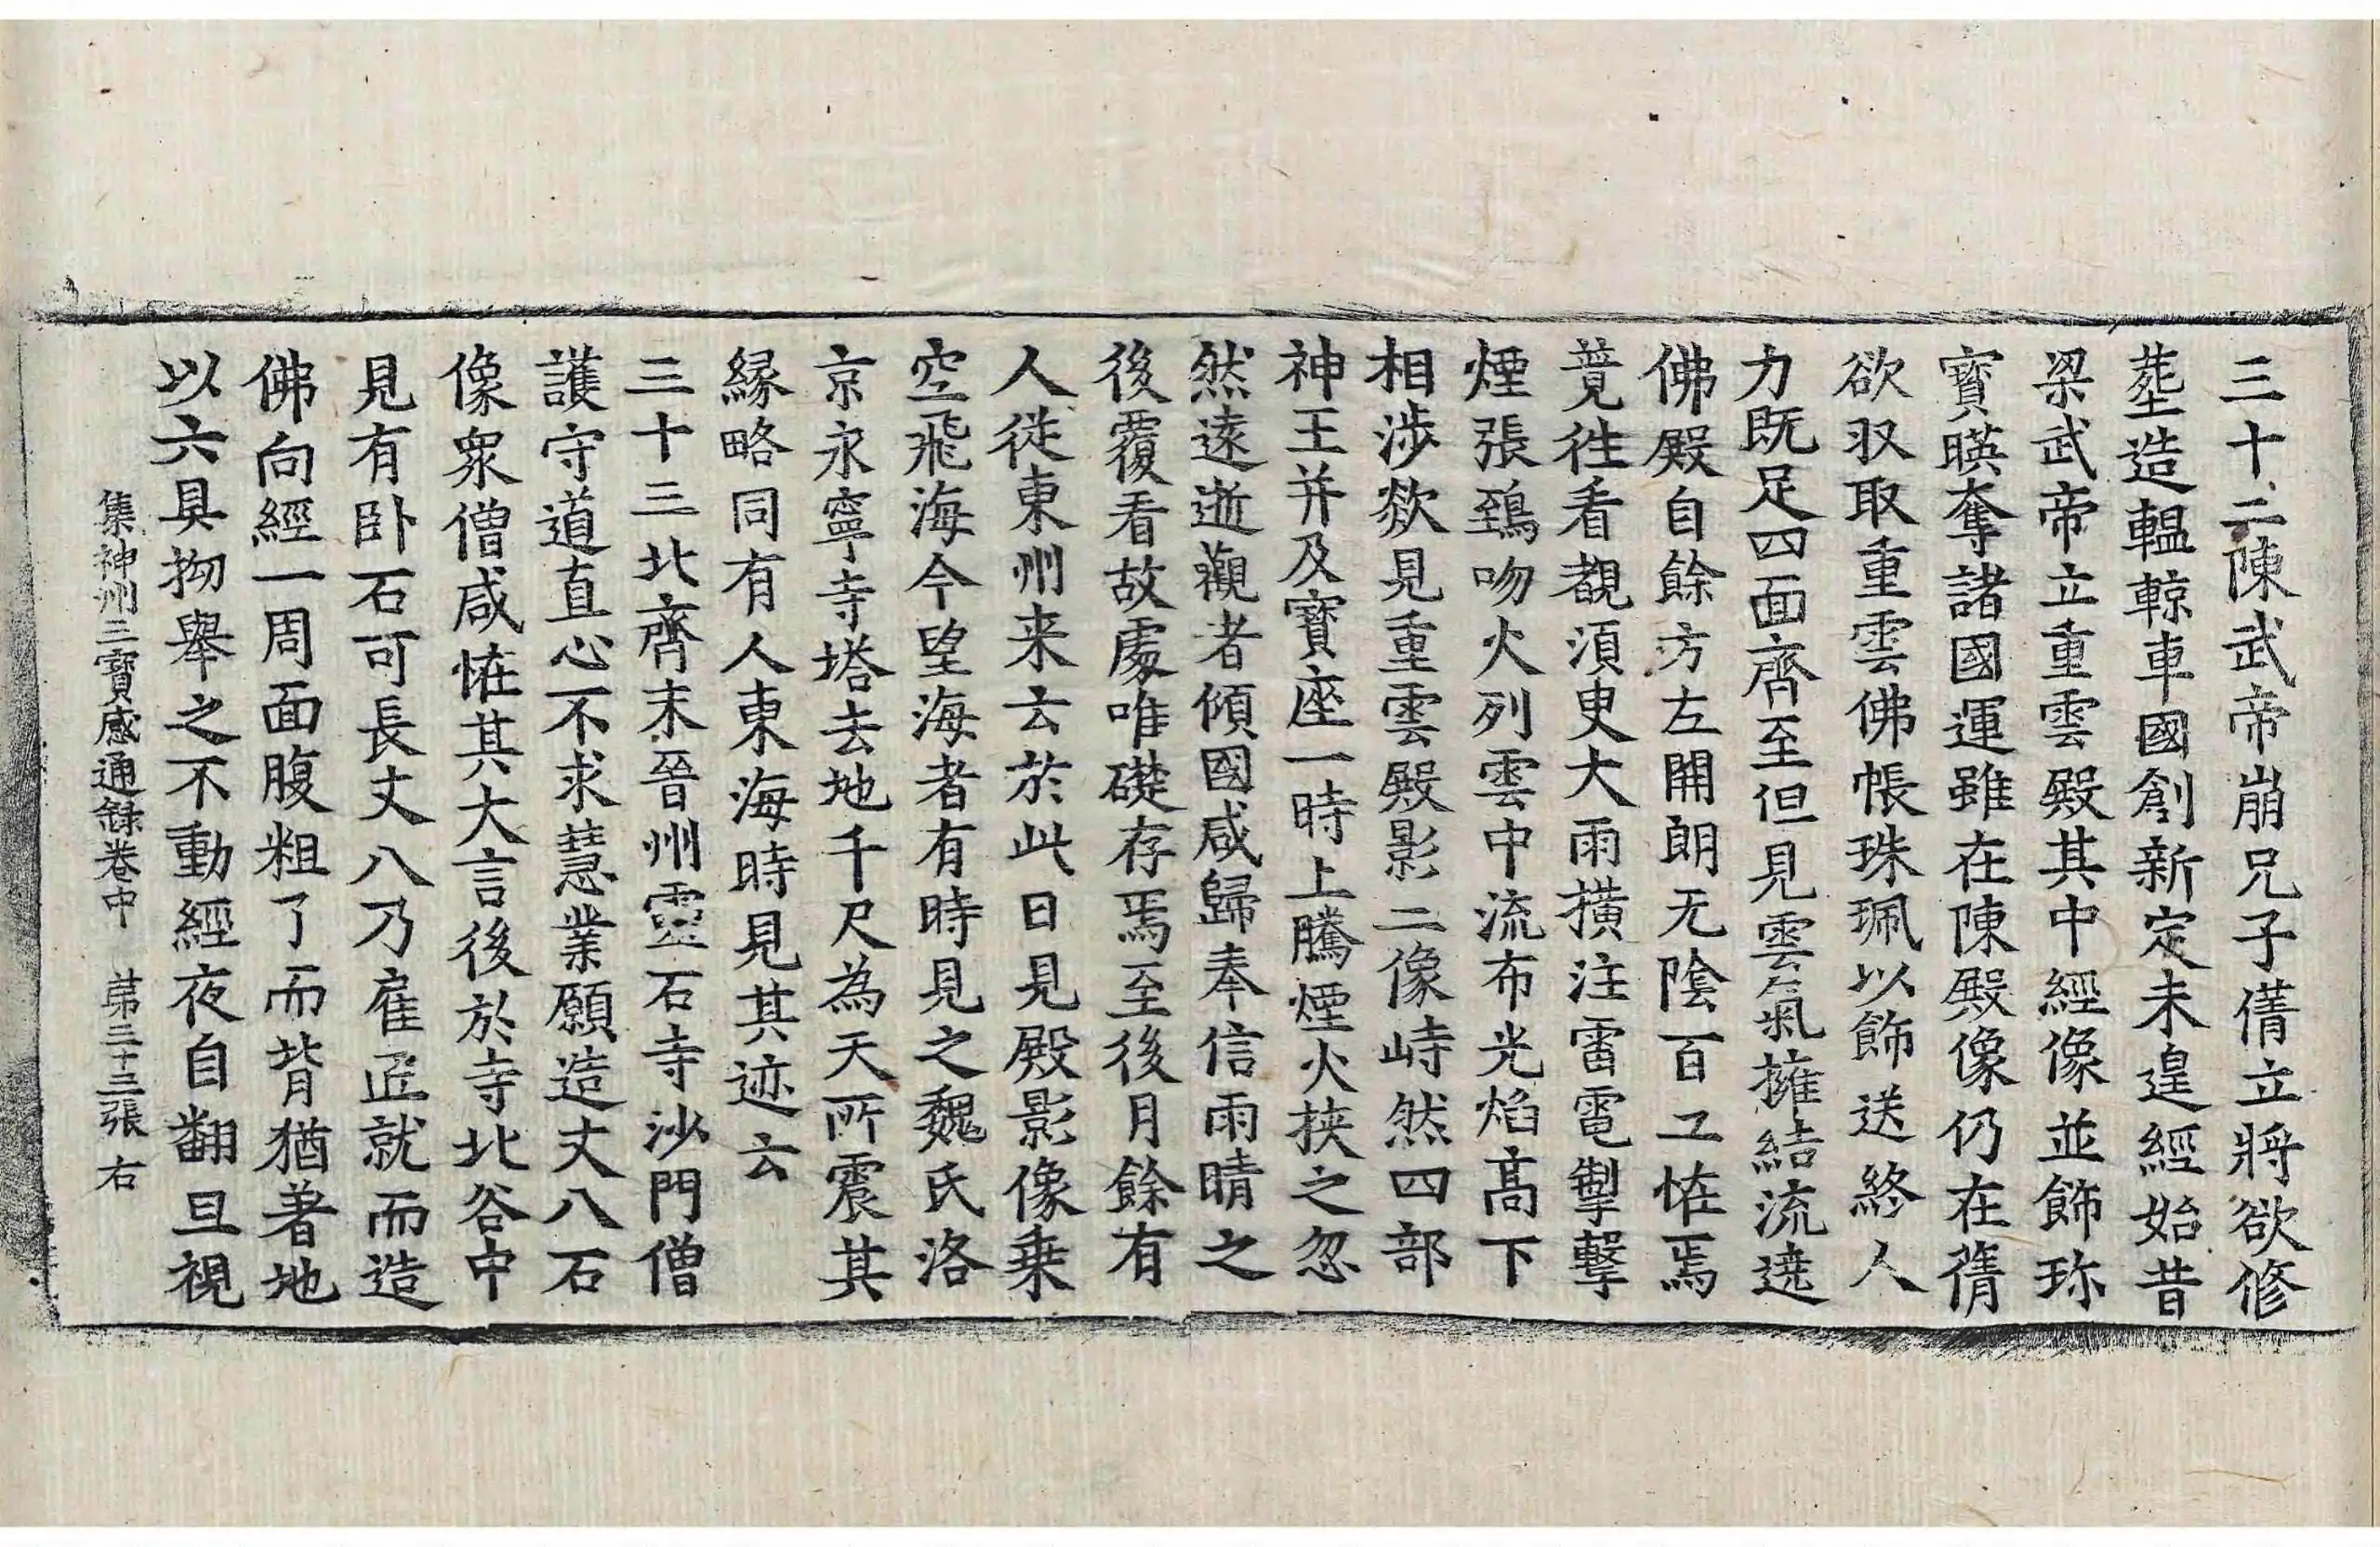 三十二陳武帝崩兄子蒨立將欲修
塟造轀輬車國創新定未遑經始昔
梁武帝立重雲殿其中經像並飾珎
寶暎奪諸國運雖在陳殿像仍在蒨
欲収取重雲佛帳珠珮以飾送終人
力既足四面齊至但見雲氣擁結流遶
佛殿自餘方左開朗无陰百工恠焉
競往看覩須臾大雨橫注雷電掣擊
煙張鵄吻火列雲中流布光焰高下
相涉欻見重雲殿影二像峙然四部
神王并及寶座一時上騰煙火挾之忽
然遠逝觀者傾國咸歸奉信雨晴之
後覆看故處唯礎存焉至後月餘有
人從東州来云於此日見殿影像乗
空飛海今望海者有時見之魏氏洛
京永寧寺塔去地千尺為天所震其
縁略同有人東海時見其迹云
三十三北齊末晉州靈石寺沙門僧
護守道直心不求慧業願造丈八石
像衆僧咸恠其大言後於寺北谷中
見有卧石可長丈八乃雇匠就而造
佛向經一周面腹粗了而背猶著地
以六具拗舉之不動經夜自翻旦視
集神州三寳感通録卷中　苐三十三張　右